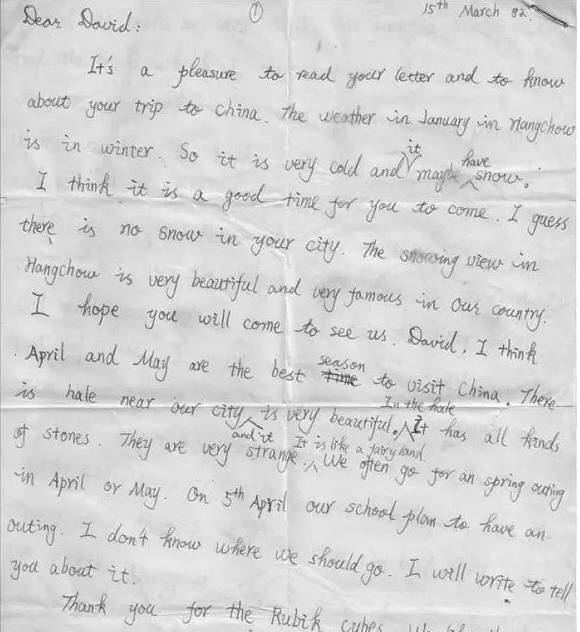 ①
15th March 82.
Dear David:
It's a pleasure to read your letter and to know
about your trip to China. The weather in January in Hangchow
is in winter. So it is very cold and it may have snow.
I think it is a good time for you to come. I guess
there is no snow in your city. The snowing view in
Hangchow is very beautiful and very famous in our country.
I hope you will come to see us. David, I think
April and May are the best season to visit China. There
is hale near our city and it is very beautiful. In the hale It has all kinds
of stones. They are very strange. It is like a fairy land. We often go for an spring outing
in April or May. On 5th April our school plan to have an
outing. I don't know where we should go. I will write to tell
you about it.
Thank you for the Rubik cubes.